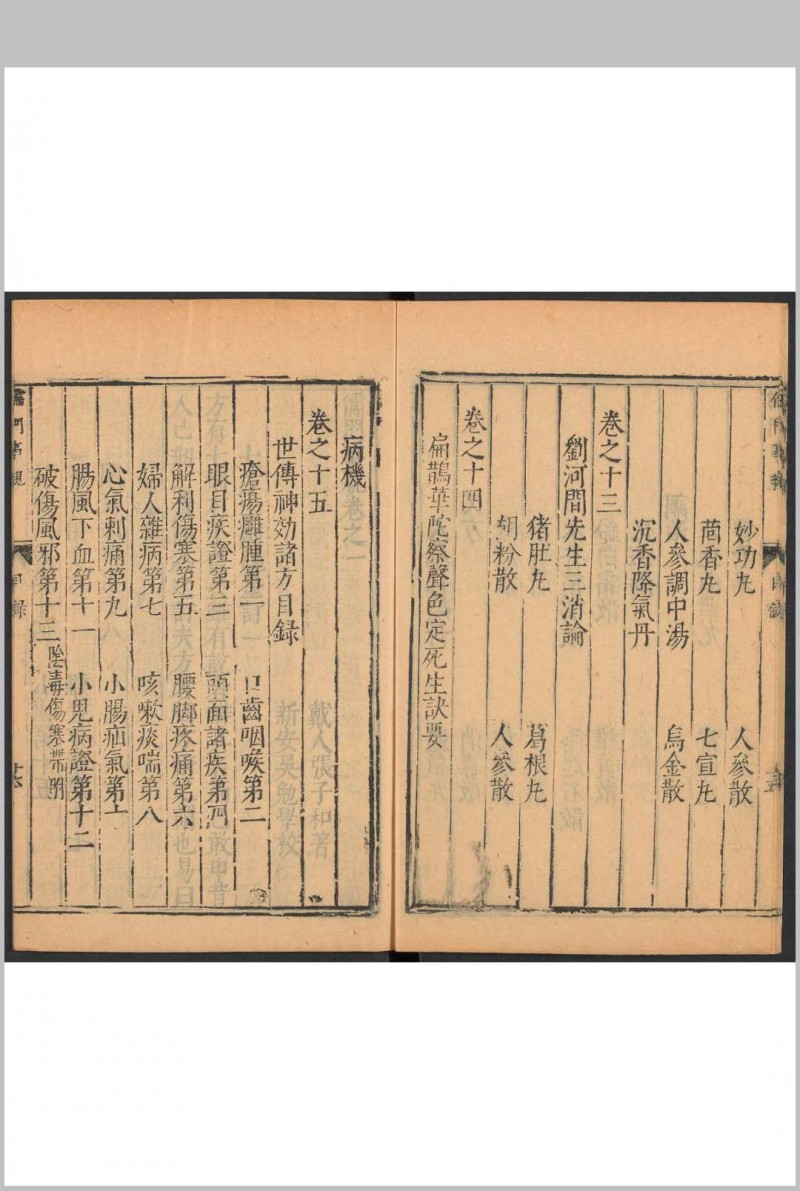 妙功丸 人參散
茴香丸 七宣丸
人參調中湯 烏金散
沉香降氣丹
卷之十三
劉河間先生三消論
豬肚丸 葛根丸
胡粉散 人參散
卷之十四
扁鵲華陀察聲色定死生訣要
病機
卷之十五
世傳神効諸方目録
瘡瘍癰腫第一 口齒咽喉第二
眼目疾證第三 頭面諸疾第四
解利傷寒第五 腰脚疼痛第六
婦人雜病第七 咳嗽痰喘第八
心氣刺痛第九 小腸疝氣第十
腸風下血第十一 小兒病證第十二
破傷風邪第十三 陰毒傷寒帶附
儒門事親 目録